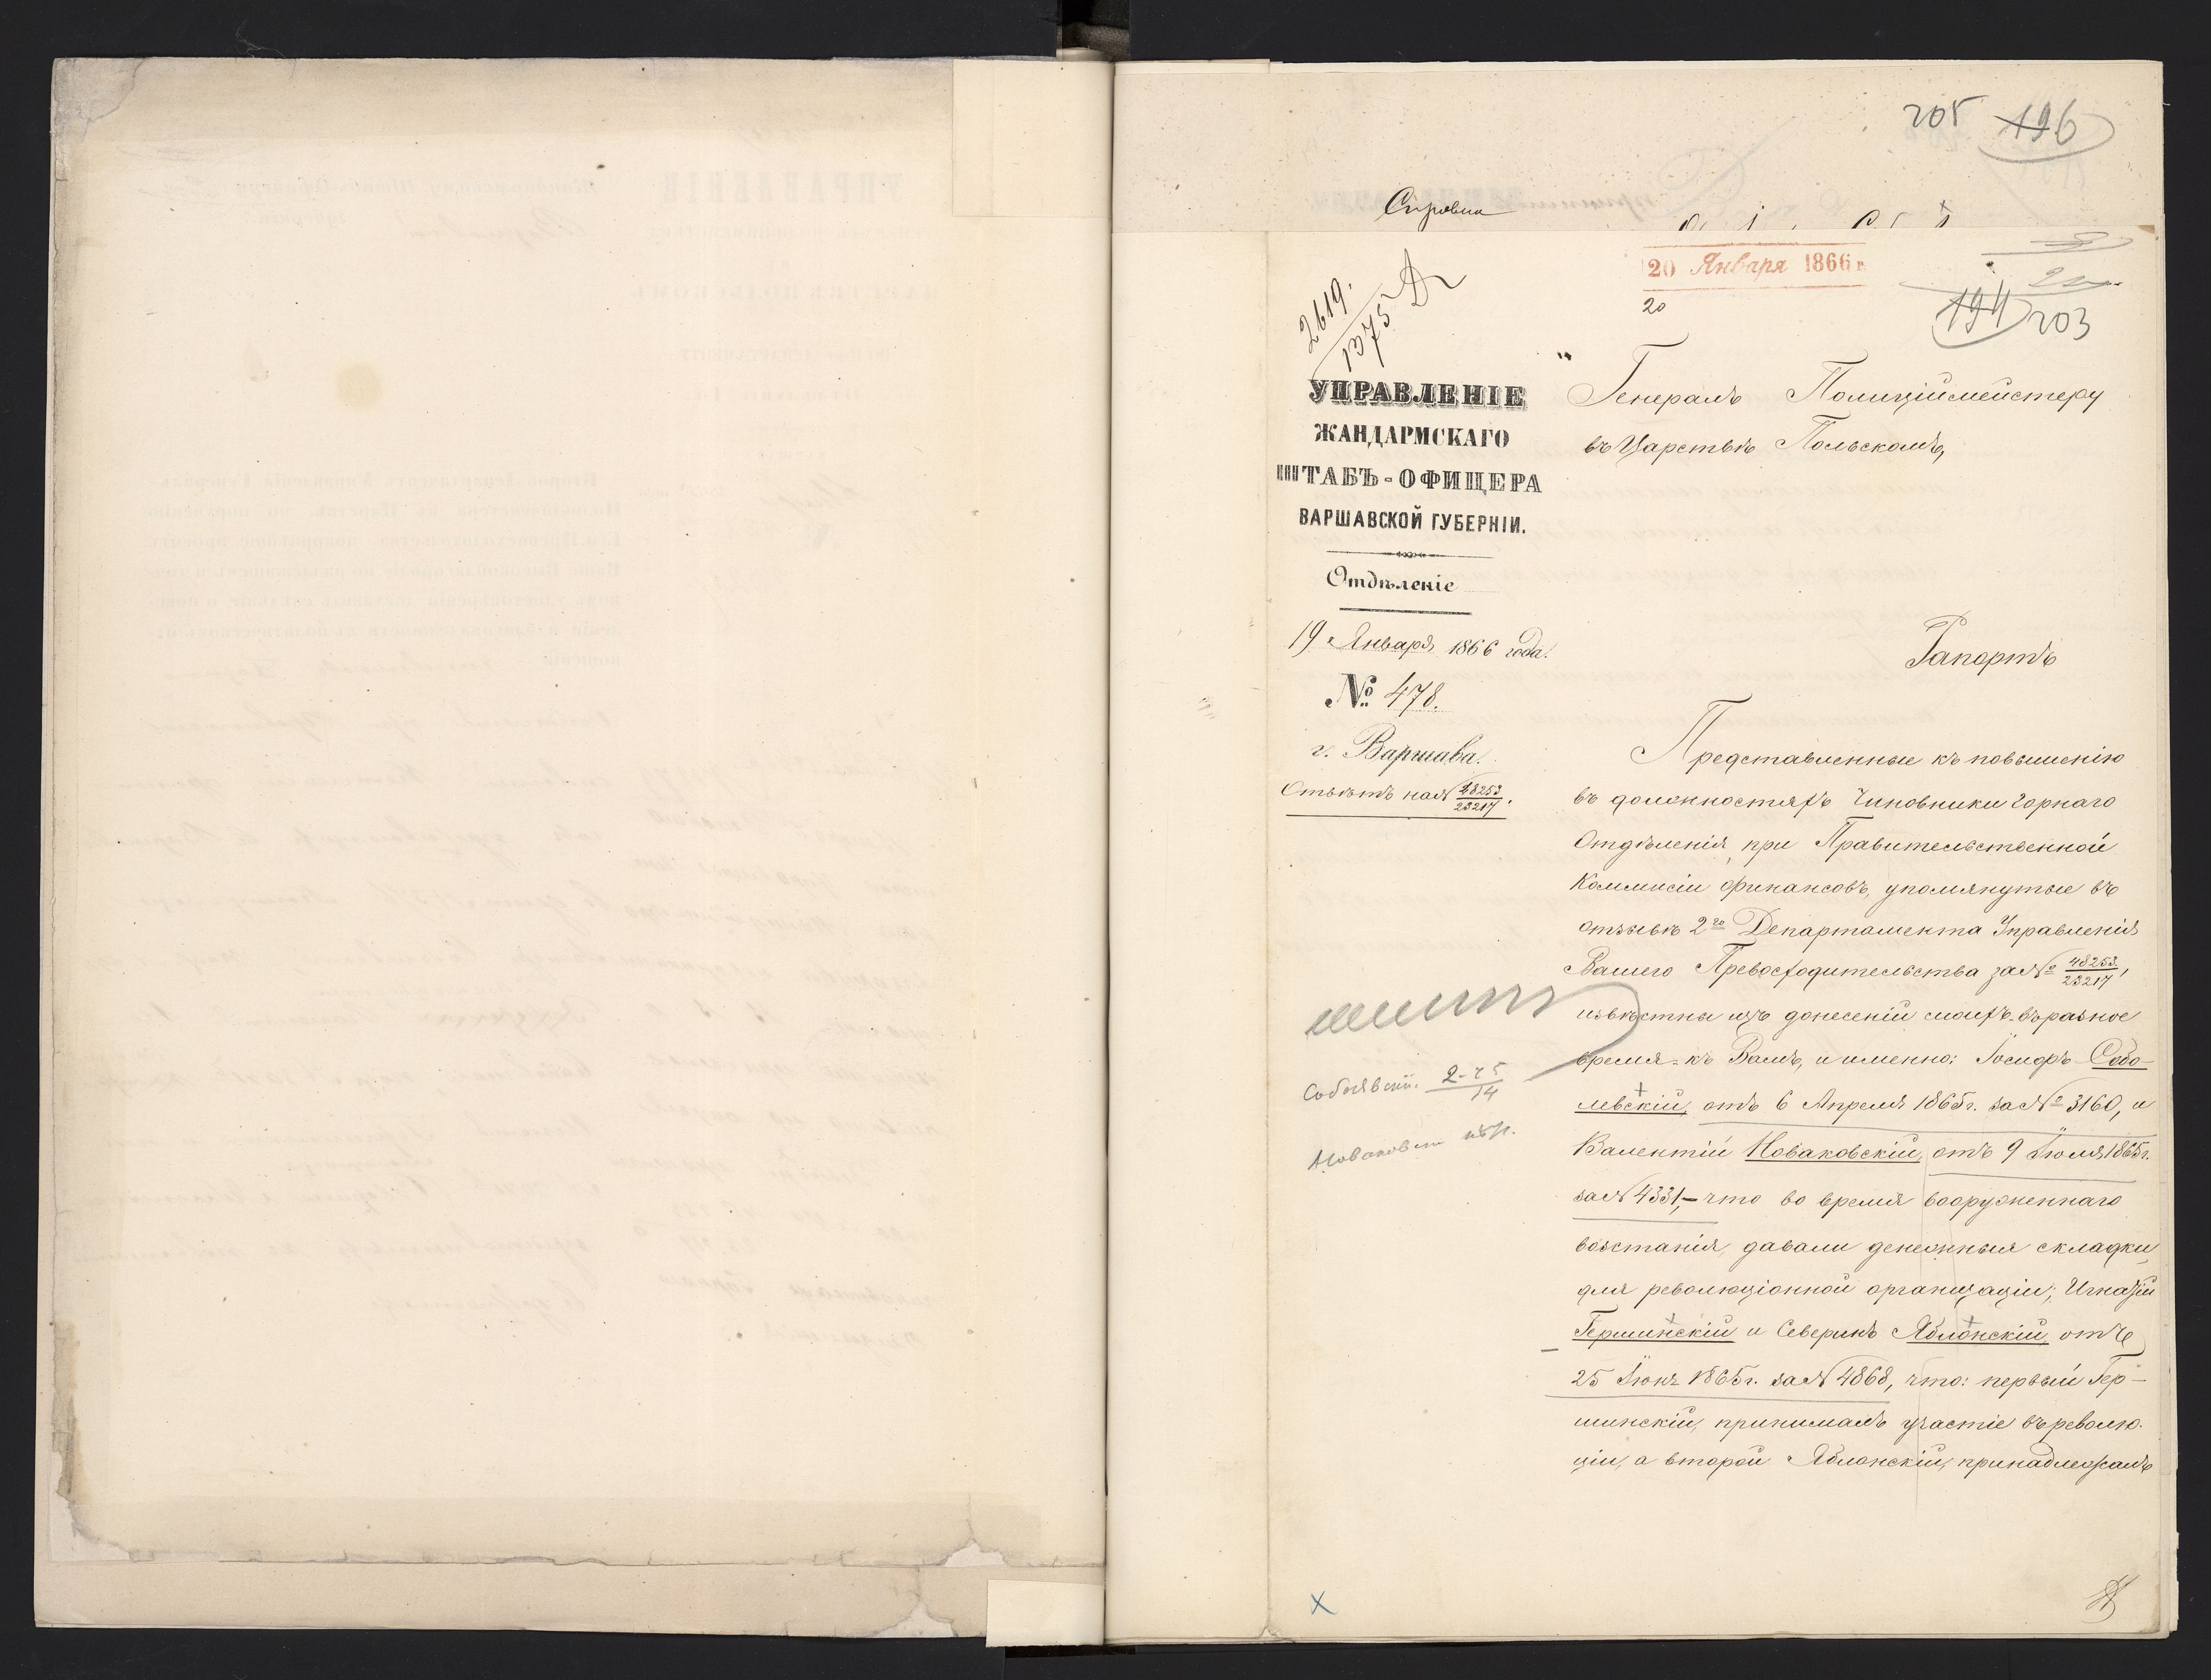 205 196
Справка
20 Января 1866 г.
20
194 203
2619.
1375 Д
УПРАВЛЕНІЕ
ЖАНДАРМСКАГО
ШТАБЪ-ОФИЦЕРА
ВАРШАВСКОЙ ГУБЕРНІИ.
Отдѣленіе
19 Января 1866 года.
№ 478.
г. Варшава.
Отвѣтъ на № 48253/23217.
Генералъ Полиціймейстеру
въ Царствѣ Польскомъ,
Рапортъ
Представленные къ повышенію
въ должностяхъ Чиновники Горнаго
Отдѣленія, при Правительственной
Коммисіи финансовъ, упомянутые въ
отзывѣ 2го Департамента Управленія
Вашего Превосходительства за № 48253/23217,
извѣстны изъ донесеній моихъ въ разное
время къ Вамъ, и именно: Іосифъ Собо-
левскій, отъ 6 Апреля 1865 г. за № 3160, и
Валентій Новаковскій, отъ 9 Іюля 1865 г.
за № 4331,– что во время вооруженнаго
возстанія, давали денежныя складки,
для революціонной организаціи; Игнацій
Гершинскій и Северинъ Яблонскій, отъ
25 Іюня 1865 г. за № 4868, что: первый Гер-
шинскій, принималъ участіе въ револю-
ціи, а второй Яблонскій, принадлежалъ
Соболевскій. 2-25/14
Новаковскій